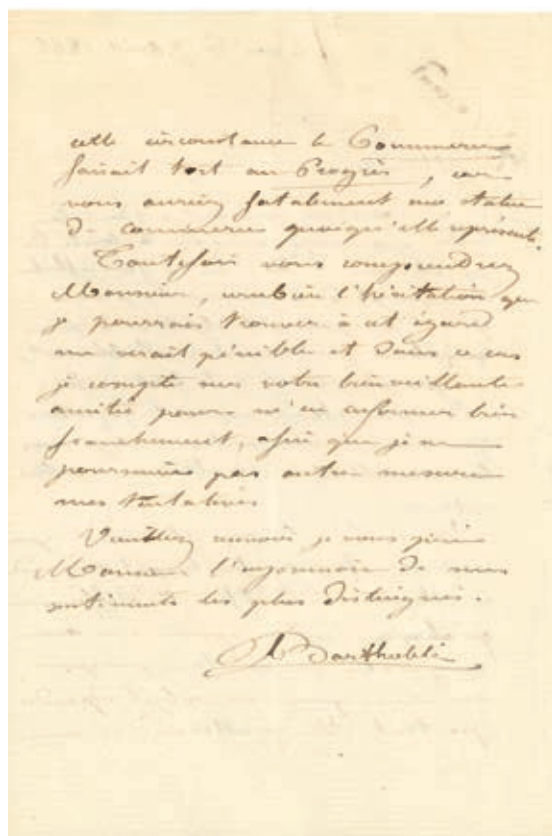 cette circonstance le Commerce
ferait tort au Progrès, car
vous auriez fatalement une statue
de commerce quoiqu'elle représente.
Toutefois vous comprendrez
Monsieur, combien l'hésitation que
je pourrais trouver à cet égard
me serait pénible et dans ce cas
je compte sur votre bienveillante
amitié pour m'en informer bien
franchement, afin que je ne
poursuive pas outre mesure
mes tentatives
Veuillez agréer je vous prie
Monsieur l'expression de mes
sentiments les plus distingués.
ABartholdi